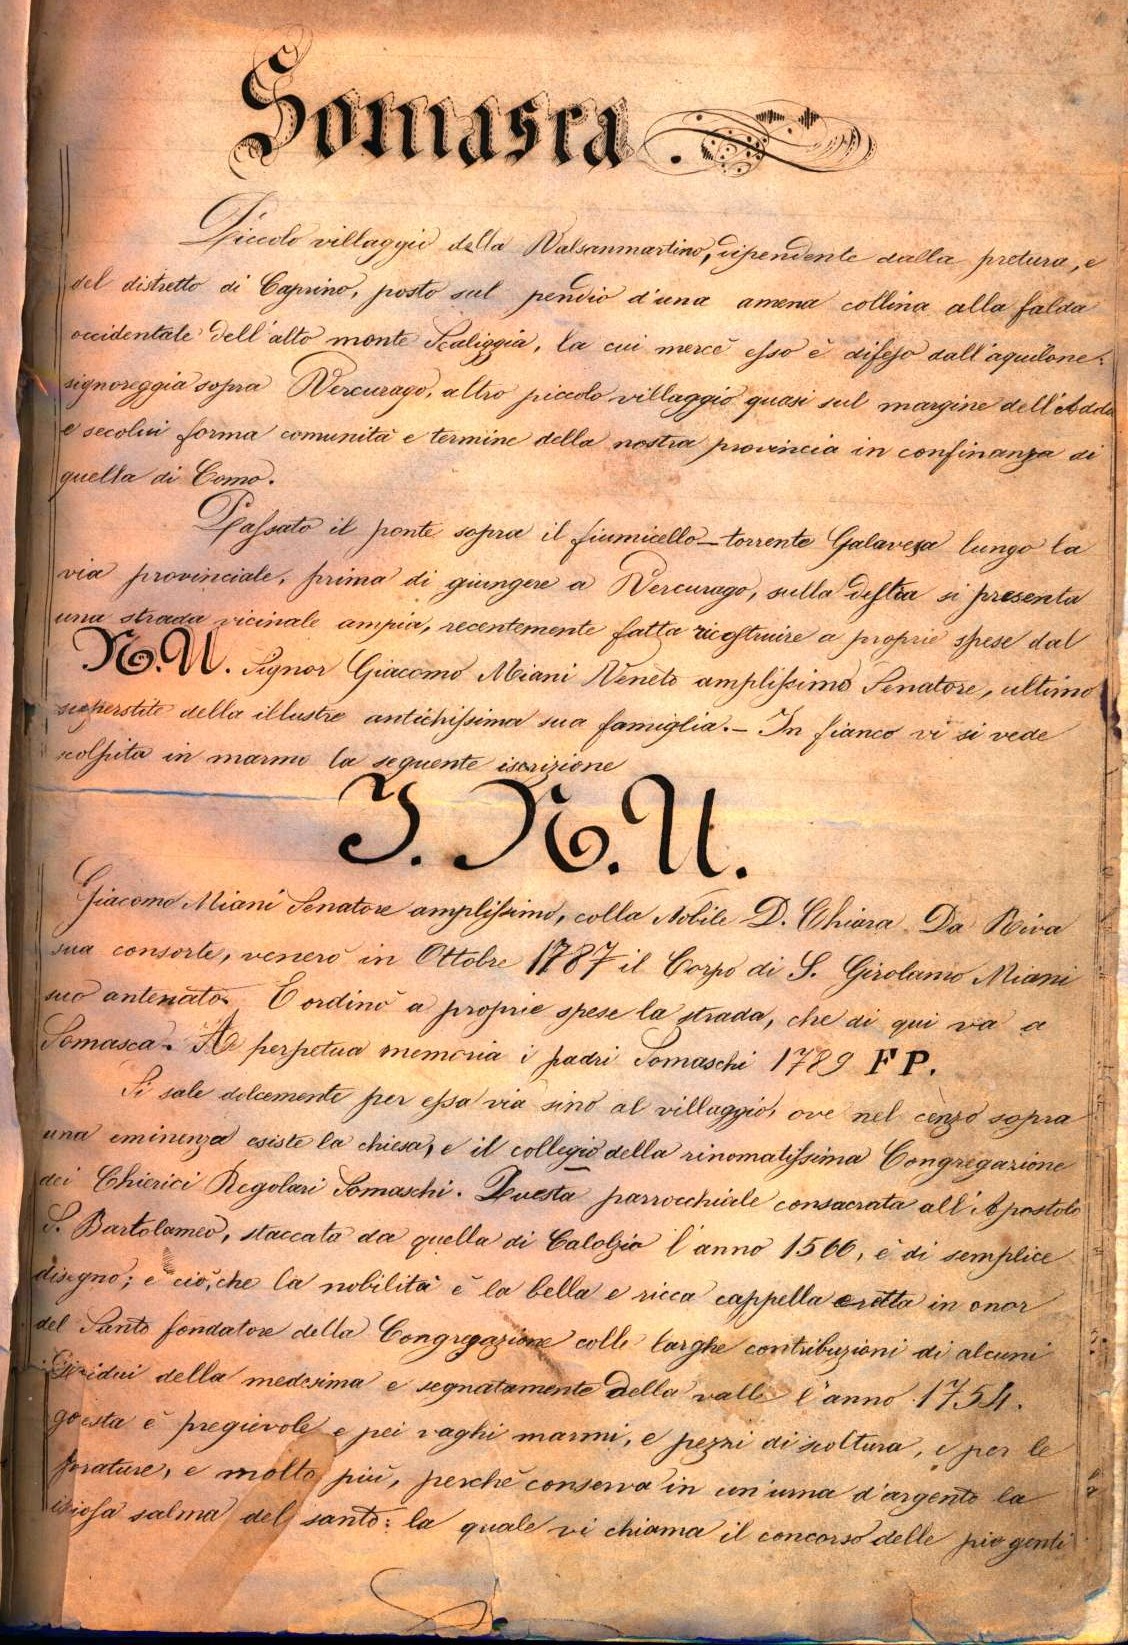 Somasca
Piccolo villaggio della Valsanmartino, dipendente dalla pretura, e
del distretto di Caprino, posto sul pendio d'una amena collina alla falda
occidentale dell'alto monte Scaliggia, la cui mercè esso è difeso dall'aquilone:
signoreggia sopra Vercurago, altro piccolo villaggio quasi sul margine dell'Adda
e secolui forma comunità e termine della nostra provincia in confinanza di
quella di Como.
Passato il ponte sopra il fiumicello-torrente Galavesa lungo la
via provinciale, prima di giungere a Vercurago, sulla destra si presenta
una strada vicinale ampia, recentemente fatta ricostruire a proprie spese dal
N.U. Signor Giacomo Miani Veneto amplissimo Senatore, ultimo
superstite della illustre antichissima sua famiglia.- In fianco vi si vede
scolpita in marmo la seguente iscrizione
I. N. U.
Giacomo Miani Senatore amplissimo, colla Nobile D. Chiara Da Riva
sua consorte, venerò in Ottobre 1787 il Corpo di S. Girolamo Miani
suo antenato. E ordinò a proprie spese la strada, che di qui va a
Somasca. A perpetua memoria i padri Somaschi 1789 FP.
Si sale dolcemente per essa via sino al villaggio, ove nel sopra
una eminenza esiste la chiesa, e il collegio della rinomatissima Congregazione
dei Chierici Regolari Somaschi. Questa parrocchiale consacrata all'Apostolo
S. Bartolameo, staccata da quella di Calolzio l'anno 1566, è di semplice
disegno; e ciò, che la nobilita è la bella e ricca cappella eretta in onor
del Santo fondatore della Congregazione colle larghe contribuzioni di alcuni
della medesima e segnatamente della valle l'anno 1754.
questa è pregievole e pei vaghi marmi, e pezzi di scoltura, e per le
e molto più, perchè conserva in un'urna d'argento la
salma del santo: la quale vi chiama il concorso delle pie genti